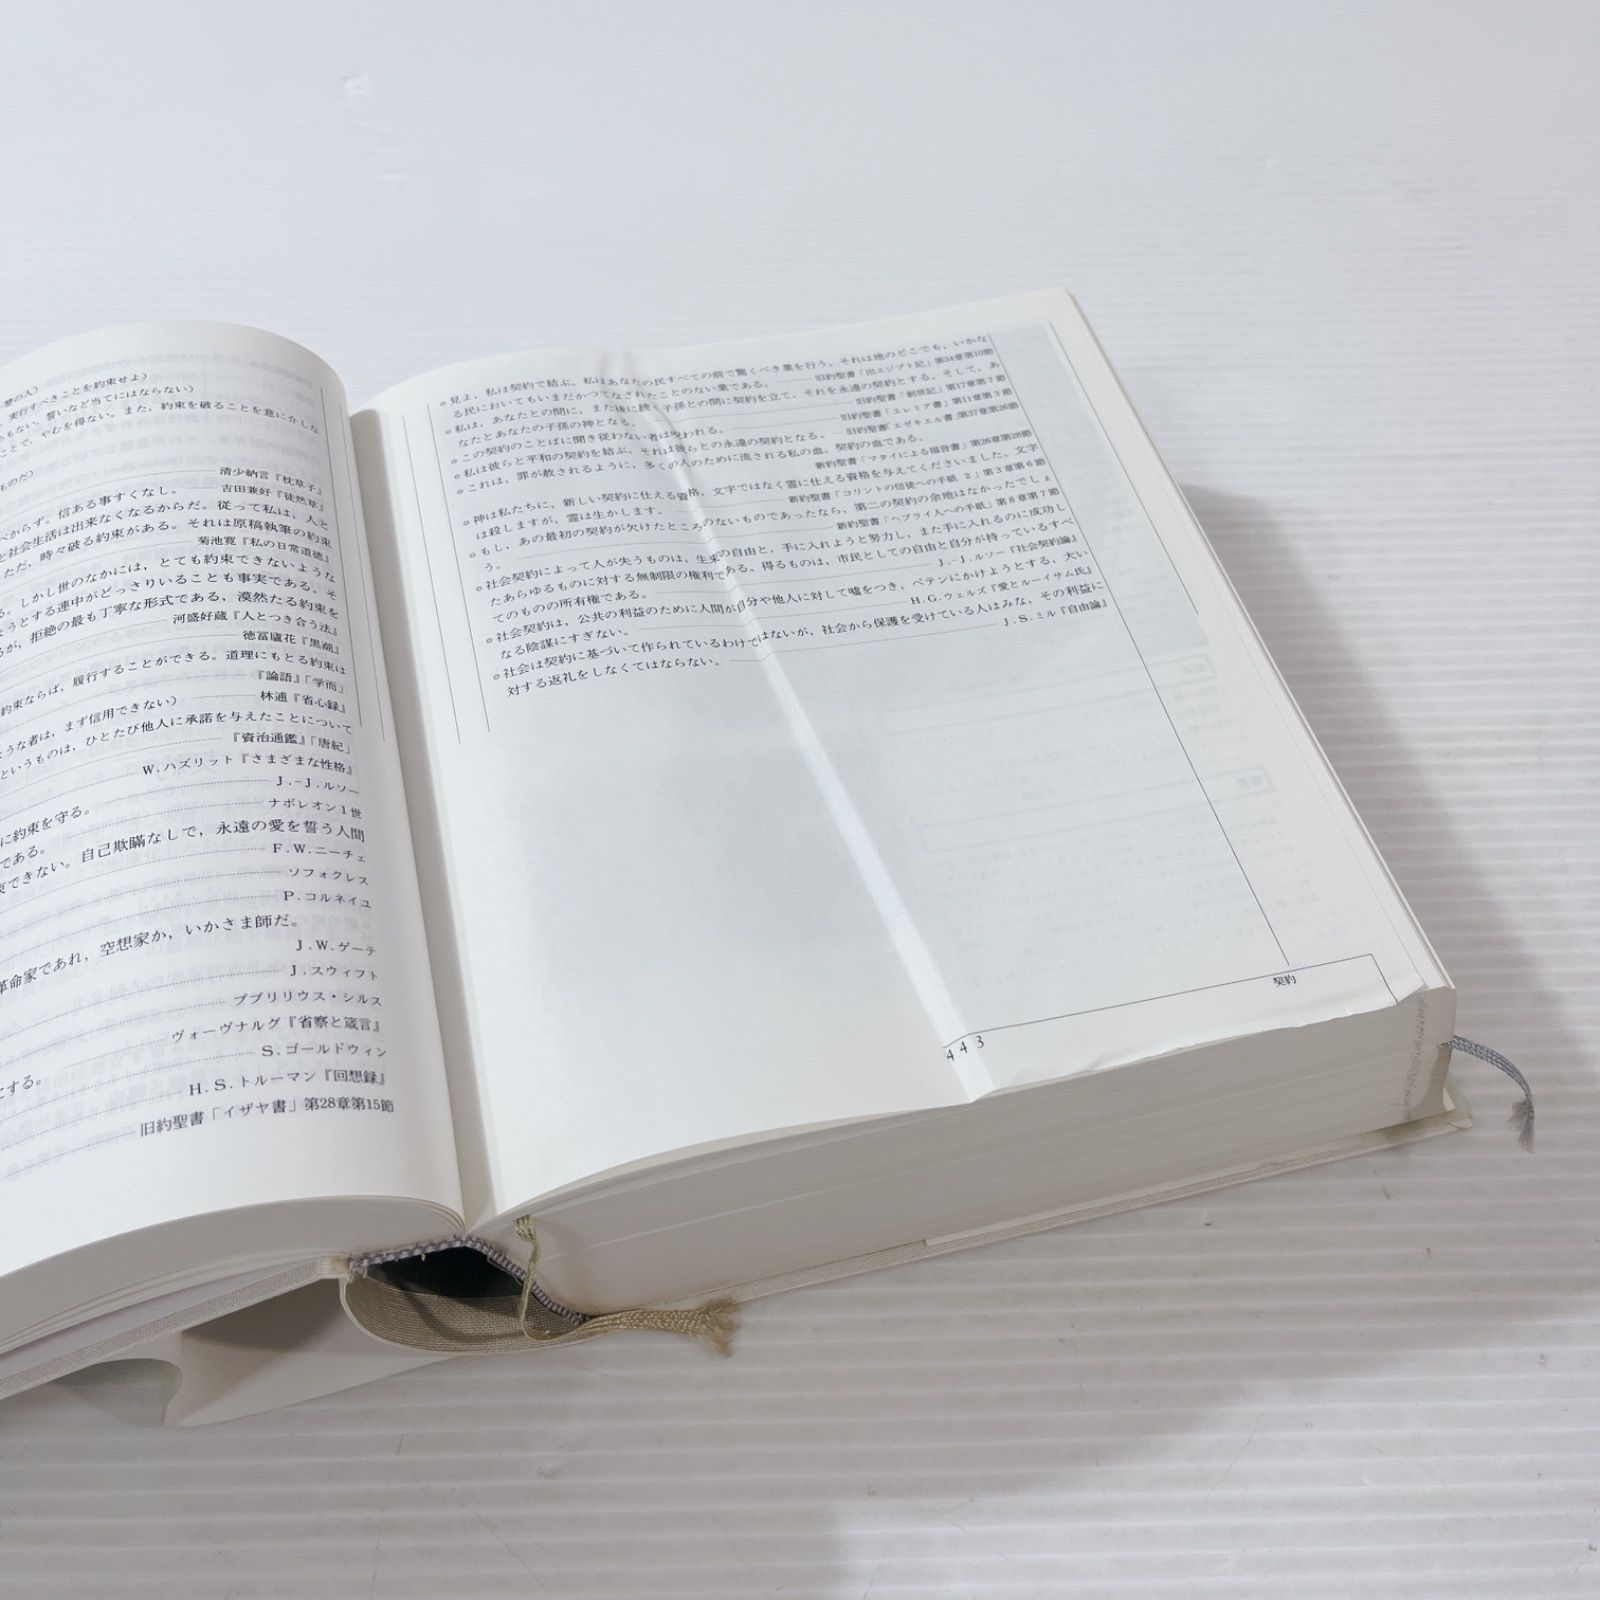 替の人）
実行すべきことを約束せよ）
もない。誓いなど当てにはならない）
また，約束を破ることを意に介しな
ことで，やむを得ない。
ものだ）
清少納言『枕草子』
べからず。信ある事すくなし。 吉田兼好『徒然草』
と社会生活は出来なくなるからだ。従って私は，人と
ただ，時々破る約束がある。それは原稿執筆の約束
菊池寛『私の日常道徳』
る。しかし世のなかには，とても約束できないような
ようとする連中がどっさりいることも事実である。そ
るが，拒絶の最も丁寧な形式である，漠然たる約束を
河盛好蔵『人とつき合う法』
徳冨蘆花『黒潮』
約束ならば，履行することができる。道理にもとる約束は
『論語』「学而」
ような者は，まず信用できない） 林逋『省心録』
というものは，ひとたび他人に承諾を与えたことについて
『資治通鑑』「唐紀」
W.ハズリット『さまざまな性格』
J.-J.ルソー
に約束を守る。 ナポレオン1世
である。
束できない。自己欺瞞なしで，永遠の愛を誓う人間
F.W.ニーチェ
ソフォクレス
P.コルネイユ
革命家であれ，空想家か，いかさま師だ。
J.W.ゲーテ
J.スウィフト
ププリリウス・シルス
ヴォーヴナルグ『省察と箴言』
にする。 S.ゴールドウィン
H.S.トルーマン『回想録』
旧約聖書「イザヤ書」第28章第15節
見よ，私は契約で結ぶ。私はあなたの民すべての前で驚くべき業を行う。それは地のどこでも，いかな
る民においてもいまだかつてなされたことのない業である。 旧約聖書「出エジプト記」第34章第10節
私は，あなたとの間に，また後に続く子孫との間に契約を立て，それを永遠の契約とする。そして，あ
なたとあなたの子孫の神となる。 旧約聖書「創世記」第17章第7節
この契約のことばに聞き従わない者は呪われる。 旧約聖書「エレミア書」第11章第3節
私は彼らと平和の契約を結ぶ。それは彼らとの永遠の契約となる。 旧約聖書「エゼキエル書」第37章第26節
これは，罪が赦されるように，多くの人のために流される私の血，契約の血である。
新約聖書「マタイによる福音書」第26章第28節
神は私たちに，新しい契約に仕える資格，文字ではなく霊に仕える資格を与えてくださいました。文字
は殺しますが，霊は生かします。 新約聖書「コリントの信徒への手紙 2」第3章第6節
もし，あの最初の契約が欠けたところのないものであったなら，第二の契約の余地はなかったでしょ
う。 新約聖書「ヘブライ人への手紙」第8章第7節
社会契約によって人が失うものは，生来の自由と，手に入れようと努力し，また手に入れるのに成功し
たあらゆるものに対する無制限の権利である。得るものは，市民としての自由と自分が持っているすべ
てのものの所有権である。 J.-J.ルソー『社会契約論』
社会契約は，公共の利益のために人間が自分や他人に対して嘘をつき，ペテンにかけようとする，大い
なる陰謀にすぎない。 H.G.ウェルズ『愛とルーイサム氏』
社会は契約に基づいて作られているわけではないが，社会から保護を受けている人はみな，その利益に
対する返礼をしなくてはならない。 J.S.ミル『自由論』
契約
443